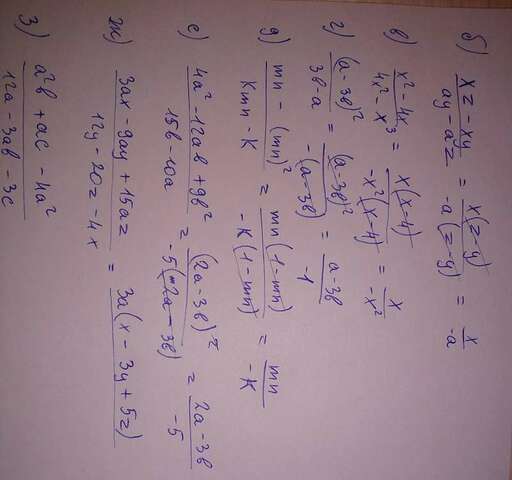 б) \frac{xz - xy}{ay - az} = \frac{x(z-y)}{-a(z-y)} = \frac{x}{-a}
в) \frac{x² - 4x}{4x² - x³} = \frac{x(x-4)}{-x²(x-4)} = \frac{x}{-x²}
г) \frac{(a-3в)²}{3в-a} = \frac{(a-3в)²}{-(a-3в)} = \frac{a-3в}{-1}
д) \frac{mn - (mn)²}{кmn - к} = \frac{mn(1-mn)}{-к(1-mn)} = \frac{mn}{-к}
е) \frac{4a² - 12aв + 9в²}{15в - 10a} = \frac{(2a-3в)²}{-5(2a-3в)} = \frac{2a-3в}{-5}
ж) \frac{3ax - 9ay + 15az}{12y - 20z - 4x} = 3a(x - 3y + 5z)
з) \frac{a²в + ac - 4a²}{12a - 3aв - 3c}